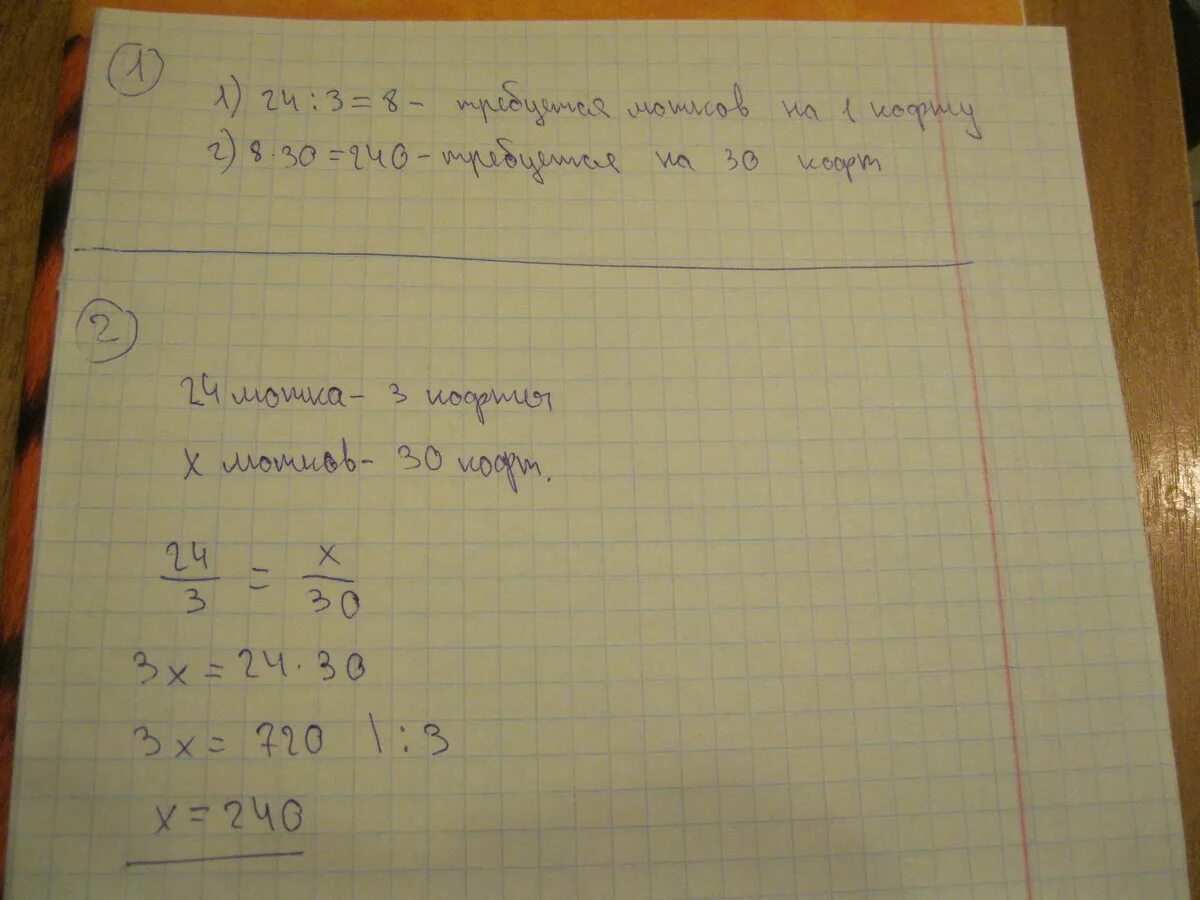 1
1) 24 : 3 = 8 - требуется мотков на 1 кофту
2) 8 · 30 = 240 - требуется на 30 кофт
2
24 мотка - 3 кофты
x мотков - 30 кофт.
24/3 = x/30
3x = 24 · 30
3x = 720 | : 3
x = 240